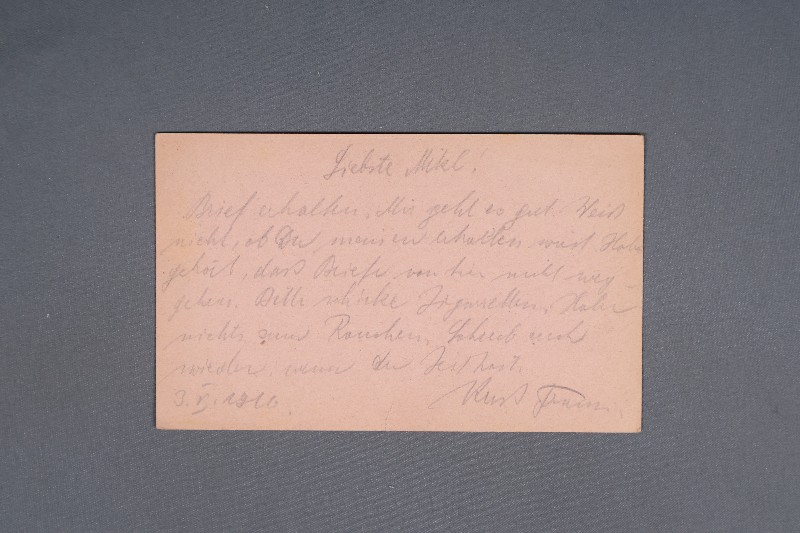 Liebste Mikl!
Brief erhalten. Mir geht es gut. Weiß
nicht, ob Du meinen erhalten hast. Habe
gehört, dass Briefe von hier nicht weg-
gehen. Bitte schicke Zigaretten. Habe
nichts zum Rauchen. Schreib auch
wieder, wenn du Zeit hast.
3. VI. 1916. Kuss Franz.